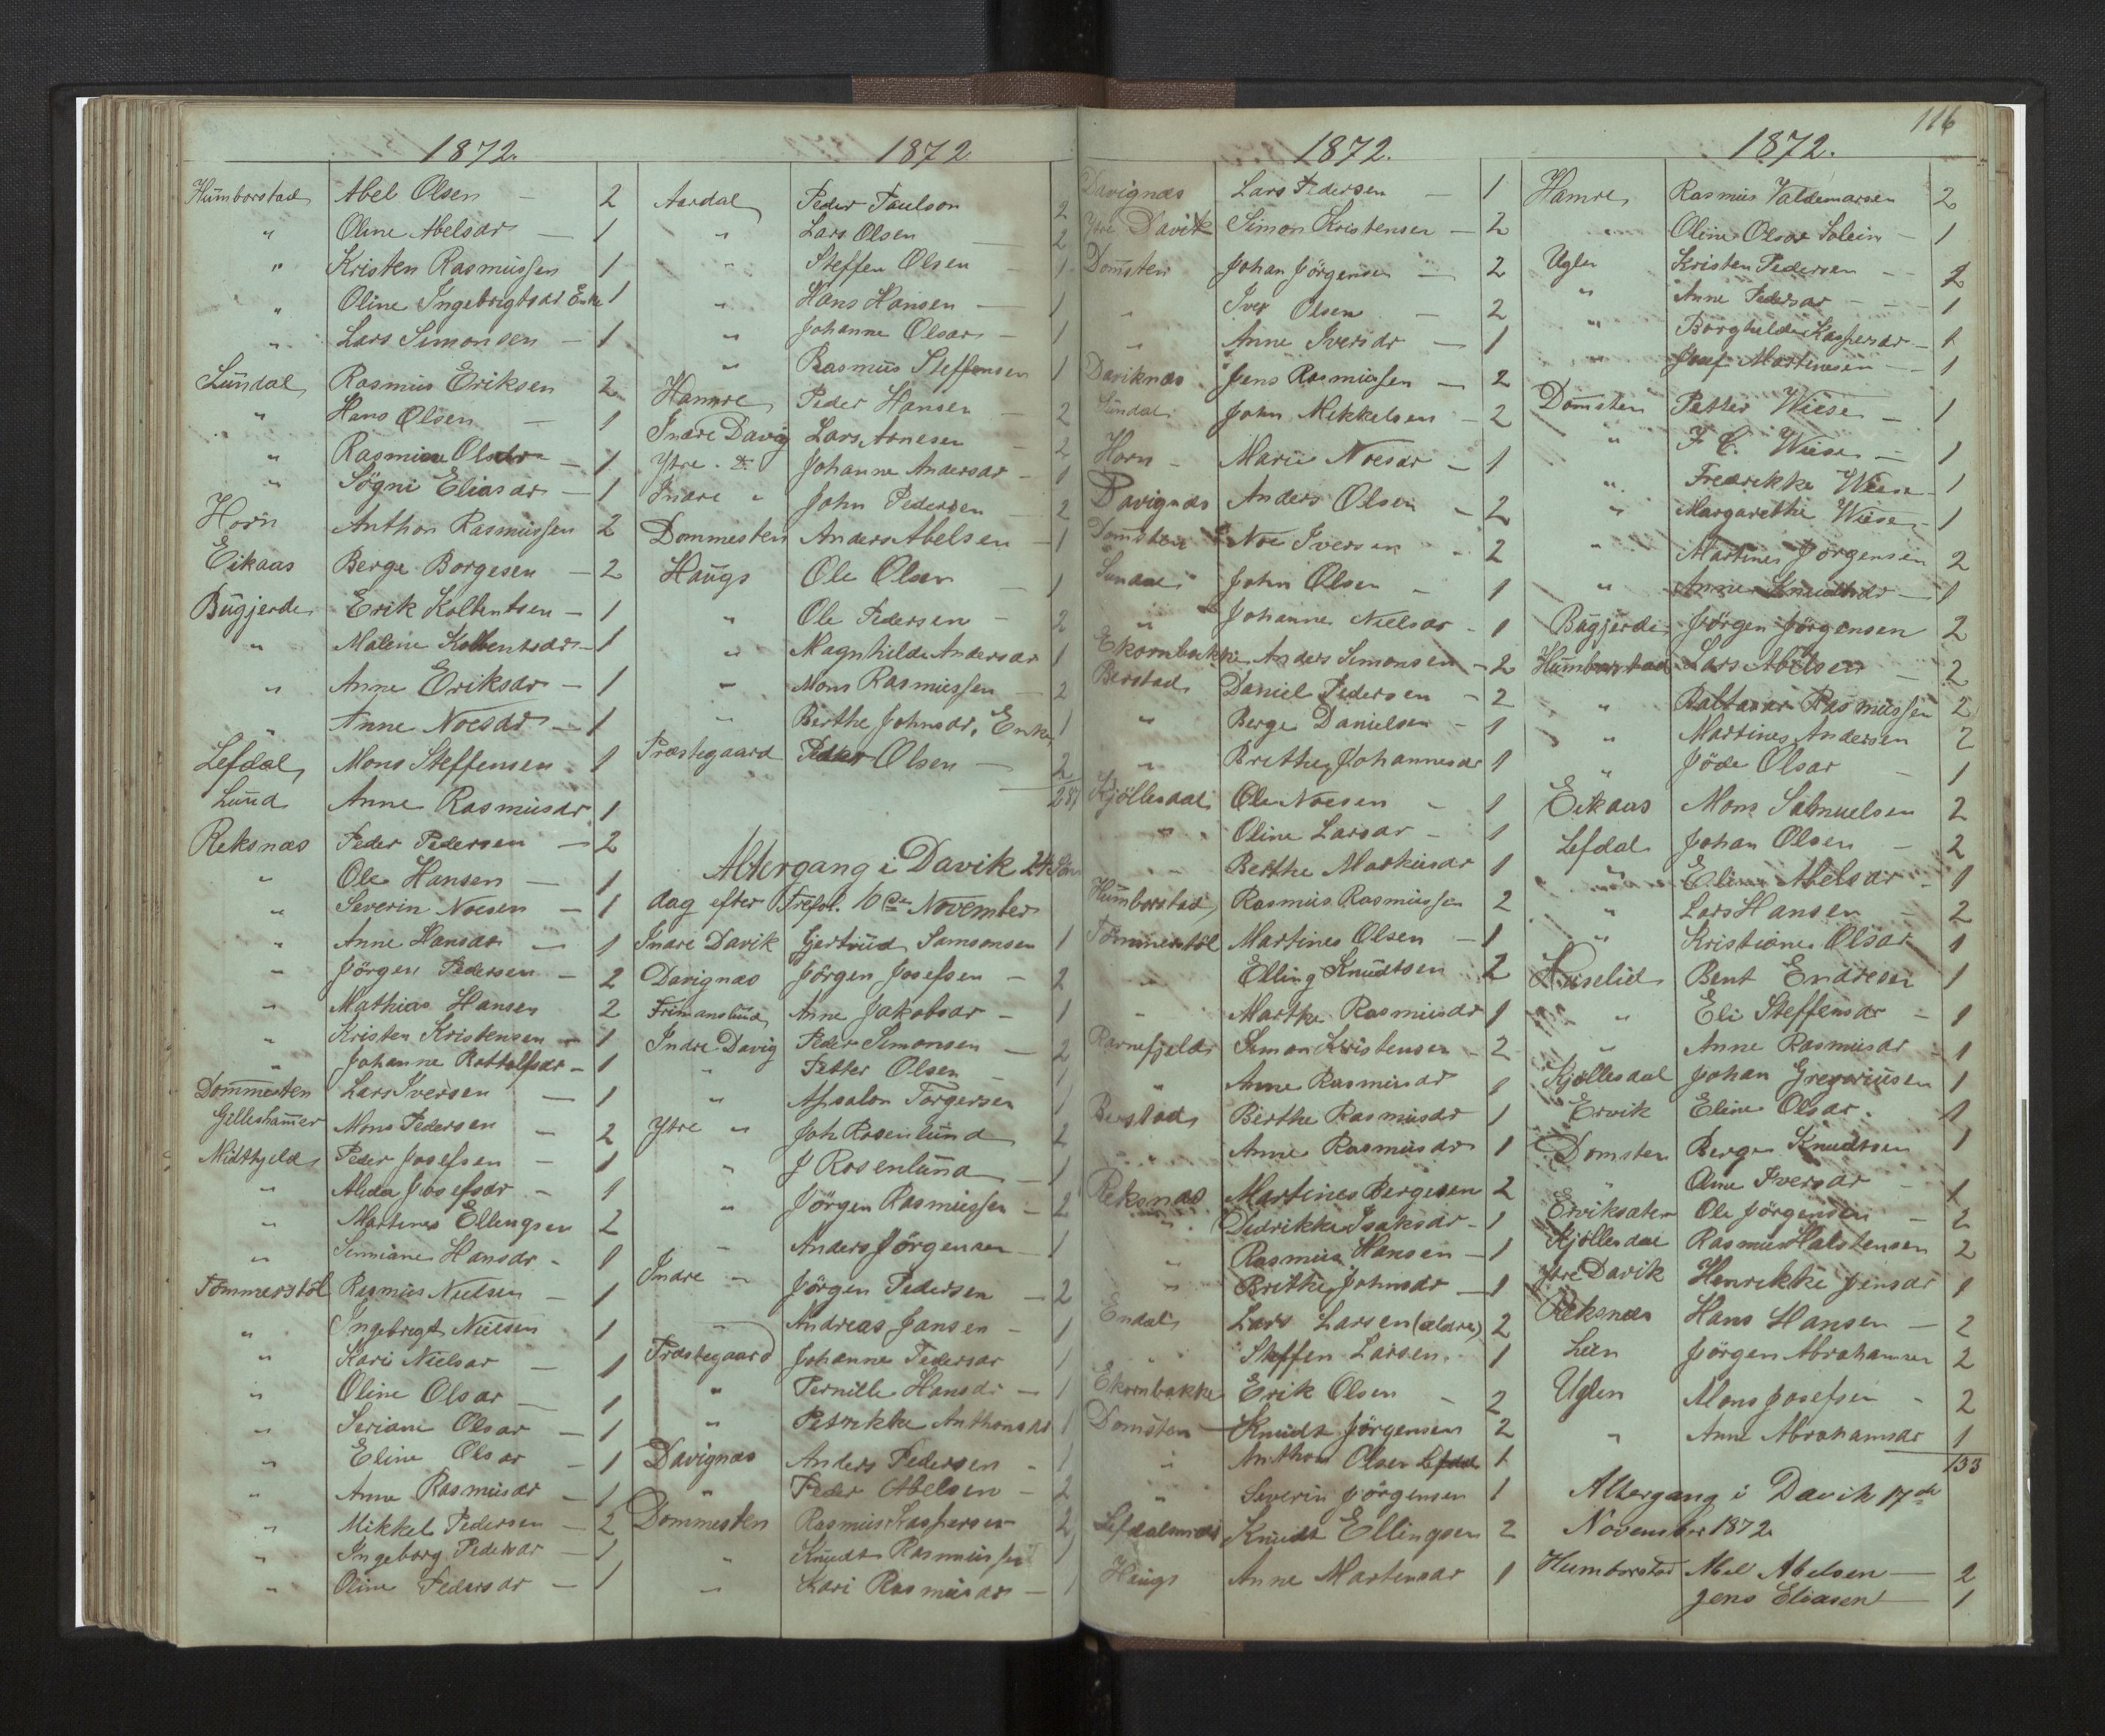 1872.
Humborstad Abel Olsen — 2
" Oline Abelsdr — 1
" Kristen Rasmussen 1
" Oline Ingebrigtsdr Enke 1
" Lars Simonsen — 1
Lundal Rasmus Eriksen 2
" Hans Olsen — 1
" Rasmine Olsdr — 1
" Sögni Eliasdr — 1
Horn Anthon Rasmussen 2
Eikaas Berge Borgesen — 2
Bugjerde Erik Kolbentsen — 1
" Malene Kolbentsdr — 1
" Anne Eriksdr — 1
Anne Noesdr — 1
Lefdal Mons Steffensen 1
Lund Anne Rasmusdr 1
Reksnæs Peder Pedersen — 2
" Ole Hansen — 1
" Severin Noesen — 1
" Anne Hansdr — 1
" Jörgen Pedersen — 2
" Mathias Hansen 2
" Kristen Kristensen — 1
" Johanne Rottolfsdr — 1
Dommesten Lars Iversen — 1
Gilleshammer Mons Pedersen — 2
Midthjeld Peder Josefsen — 1
" Alida Josefsdr — 1
" Martines Ellingsen 2
" Simiane Hansdr — 1
Tommerstöl Rasmus Nielsen — 1
" Ingebrigt Nielsen 1
" Kari Nielsdr — 1
" Oline Olsdr — 1
" Seriane Olsdr — 1
" Eline Olsdr — 1
" Anne Rasmusdr — 1
" Mikkel Pedersen — 2
" Ingeborg Pedersdr — 1
" Oline Pedersdr — 1
1872
Aardal Peder Paulson 2
" Lars Olsen — 2
" Steffen Olsen — 1
" Hans Hansen — 1
" Johanne Olsdr — 1
" Rasmus Steffensen 1
Hamre Peder Hansen — 2
Indre Davig Lars Arnesen — 2
Ytre do Johanne Andersdr — 1
Indre " John Pedersen — 2
Dommesten Anders Abelsen — 1
Haugs Ole Olsen — 1
" Ole Pedersen — 2
" Magnhilde Andersdr 1
" Mons Rasmussen — 2
" Berthe Johnsdr, Enke 1
Præstegaard Peder Olsen — 2
287
Altergang i Davik 24 Søn
dag efter Trefol. 10de November
Indre Davik Gjertrud Samsonsen 1
Davignæs Jörgen Josefsen — 2
Frimanslund Anne Jakobsdr — 1
Indre Davig Peder Simonsen — 2
" Petter Olsen — 1
" Absalon Torgersen 1
Ytre " Joh Rosenlund 2
" J Rosenlund — 1
" Jörgen Rasmussen — 2
" Anders Jörgensen — 1
Indre " Jörgen Pedersen — 2
" Andreas Jansen — 1
Præstegaard Johanne Pedersdr 1
" Pernille Hansdr — 1
" Petrikke Anthonsdr 1
Davignæs Anders Pedersen — 1
" Peder Abelsen — 2
Dommesten Rasmus Kaspersen 2
" Knudt Rasmussen 1
" Kari Rasmusdr — 1
116
1872.
Davignæs Lars Pedersen — 1
Ytre Davik Simon Kristensen — 2
Domsten Johan Jörgensen — 2
" Iver Olsen — 2
" Anne Iversdr — 1
Daviknæs Jens Rasmussen — 2
Lundal John Mikkelsen — 2
Horn — Marie Noesdr — 1
Davignæs Anders Olsen — 2
Domsten Noe Iversen — 2
Lundal John Olsen — 1
" Johanne Nielsdr — 1
Ekornbakke Anders Simonsen — 2
Berstad Daniel Pedersen — 2
" Berge Danielsen — 1
" Brithe Johannesdr 1
Kjöllesdal Ole Noesen — 1
" Oline Larsdr — 1
" Berthe Markusdr 1
Humborstad Rasmus Rasmussen 2
Tommerstöl Martines Olsen — 1
" Elling Knudtsen 2
" Marthe Rasmusdr 1
Ravnefjeld Simon Kristensen — 2
" Anne Rasmusdr 1
Berstad Berthe Rasmusdr 1
" Anne Rasmusdr 1
Reksnæs Martines Bergesen 2
" Didrikke Isaksdr — 1
" Rasmus Hansen — 1
" Brithe Johnsdr — 1
Endal Lars Larsen (ældre) 2
" Steffen Larsen 1
Ekornbakke Erik Olsen — 2
Domsten Knudt Jörgensen 2
" Anthon Olsen Lefdal 1
" Severin Jörgensen 1
Lefdalsnæs Knudt Ellingsen 2
Haugs Anne Martensdr 1
1872.
Hamre Rasmus Valdemarsen 2
" Oline Olsdr Solein — 1
Uglen Kristen Pedersen — 2
" Anne Pedersdr — 1
" Borghilde Kaspersdr — 1
" Josef Martinesen — 1
Domsten Petter Wiese — 1
" F C. Wiese — 1
" Fredrikke Wiese — 1
" Margarethe Wiese — 1
" Martines Jörgensen 2
" Anne Knudtsdr — 1
Bugjerde Jörgen Jörgensen 2
Humborstad Lars Abelsen — 2
" Baltazar Rasmussen 2
" Martines Andersen 2
" Jöde Olsdr — 1
Eikaas Mons Salmuelsen 2
Lefdal Johan Olsen — 2
" Eline Abelsdr — 1
" Lars Hansen — 2
" Kristiane Olsdr 1
Bent Endresen 1
" Eli Steffensdr — 1
" Anne Rasmusdr — 1
Kjöllesdal Johan Gregoriusen 1
Ervik Eline Olsdr 1
Domsten Berge Knudtsen 1
" Oline Iversdr — 1
Erviksæter Ole Jörgensen — 2
Kjöllesdal Rasmus Halstensen 2
Ytre Davik Henrikke Jensdr 1
Reksnæs Hans Hansen — 2
Leen Jörgen Abrahamsen 2
Uglen Mons Josefsen — 2
" Anne Abrahamsdr 1
133
Altergang i Davik 17de
November 1872
Humborstad Abel Abelsen — 2
Jens Eliasen — 1